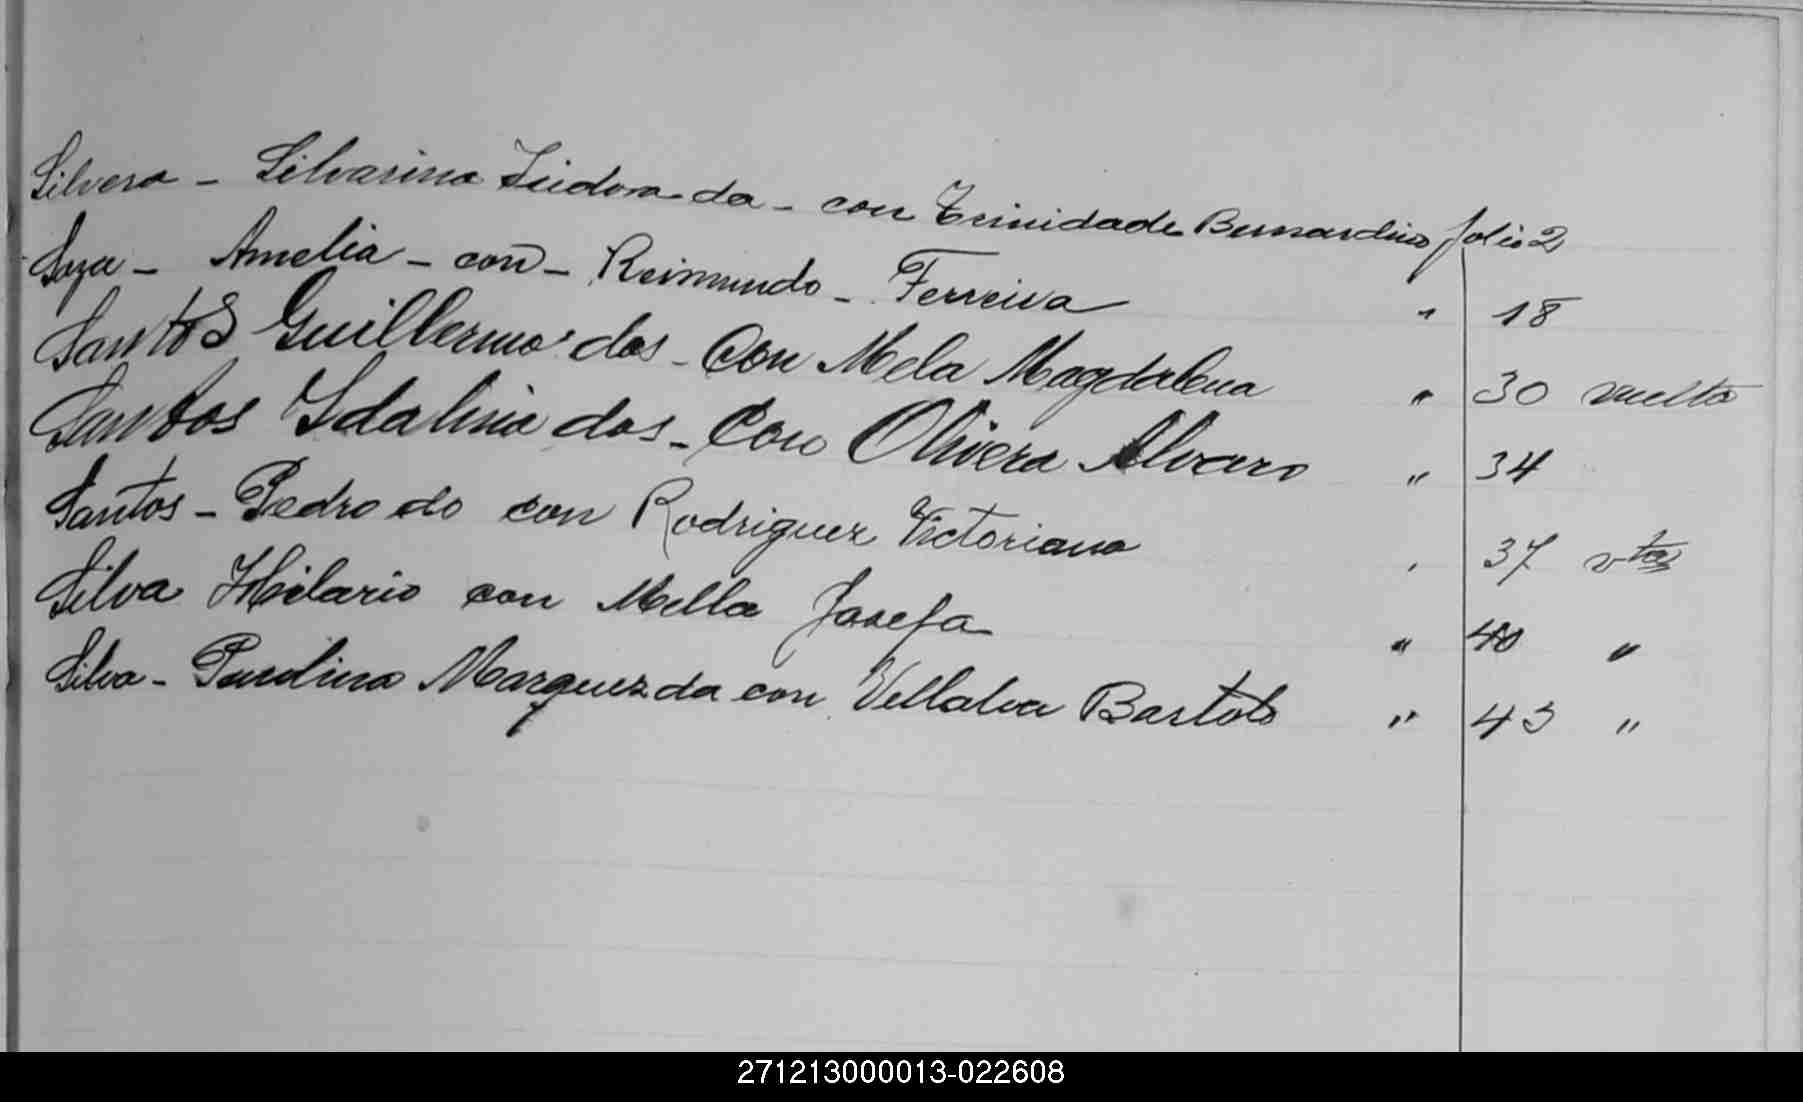 Silvera - Silvarina Isidora da - con Trinidade Bernardino folio 2
Soza - Amelia - con - Reimundo - Ferreira " 18
Santos Guillermo dos - Con Mela Magdalena " 30 vuelta
Santos Idalina dos - Con Olivera Alvaro " 34
Santos - Pedro do con Rodriguez Victoriana " 37 vta
Silva Hilario con Mella Josefa " 40 "
Silva - Paulina Marquez da con Villalva Bartolo " 43 "
271213000013-022608